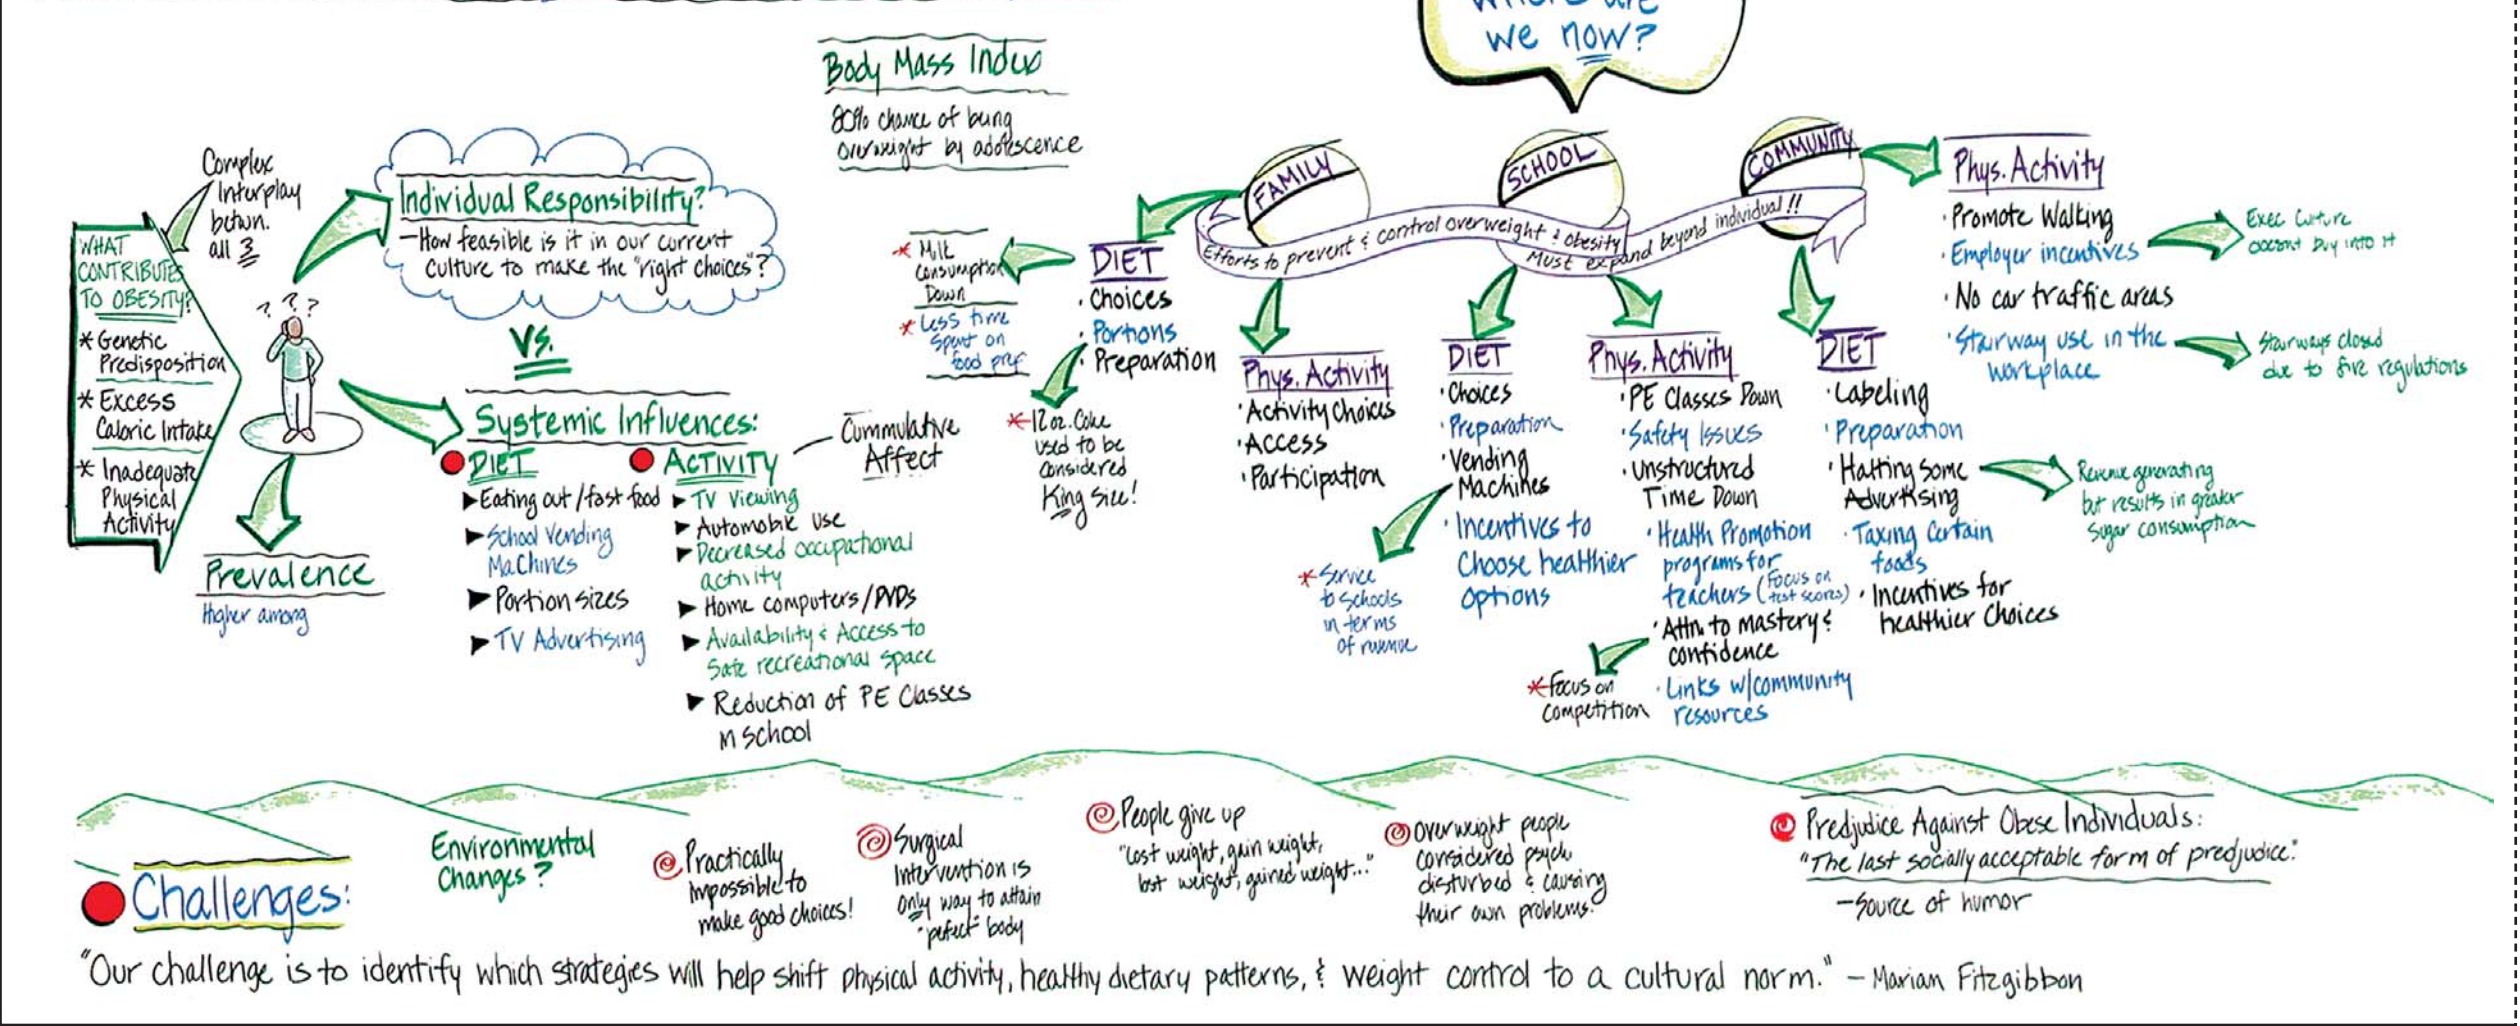 we now?
Body Mass Index
80% chance of being
overweight by adolescence
Complex
Interplay
betwn.
all 3
WHAT
CONTRIBUTES
TO OBESITY?
* Genetic
Predisposition
* Excess
Caloric Intake
* Inadequate
Physical
Activity
Individual Responsibility?
- How feasible is it in our current
culture to make the "right choices"?
? ? ?
VS.
Systemic Influences:
DIET
Eating out/fast food
School Vending
Machines
Portion sizes
TV Advertising
ACTIVITY
TV Viewing
Automobile use
Decreased occupational
activity
Home computers/DVDs
Availability & Access to
Safe recreational space
Reduction of PE Classes
in School
Cummulative
Affect
Prevalence
Higher among
FAMILY
SCHOOL
COMMUNITY
Efforts to prevent & control overweight & obesity
Must expand beyond individual!!
DIET
· Choices
· Portions
· Preparation
* Milk
Consumption
Down
* Less time
spent on
food prep
* 12 oz. Coke
used to be
considered
King Size!
Phys. Activity
· Activity Choices
· Access
· Participation
DIET
· Choices
· Preparation
· Vending
Machines
· Incentives to
Choose healthier
options
* Service
to schools
in terms
of revenue
Phys. Activity
· PE Classes Down
· Safety Issues
· Unstructured
Time Down
· Health Promotion
programs for
teachers (Focus on
test scores)
· Attn. to mastery &
confidence
· Links w/community
resources
* Focus on
Competition
DIET
· Labeling
· Preparation
· Halting Some
Advertising
· Taxing Certain
foods
· Incentives for
healthier Choices
Revenue generating
but results in greater
sugar consumption
Phys. Activity
· Promote Walking
· Employer incentives
· No car traffic areas
· Stairway use in the
workplace
Exec Culture
doesn't buy into it
Stairways closed
due to fire regulations
Challenges:
Environmental
Changes?
Practically
Impossible to
make good choices!
Surgical
Intervention is
only way to attain
"perfect" body
People give up
"Lost weight, gain weight,
lost weight, gained weight..."
Overweight people
considered psych
disturbed & causing
their own problems.
Predjudice Against Obese Individuals:
"The last socially acceptable form of predjudice."
- Source of humor
"Our challenge is to identify which strategies will help shift physical activity, healthy dietary patterns, & weight control to a cultural norm." - Marian Fitzgibbon